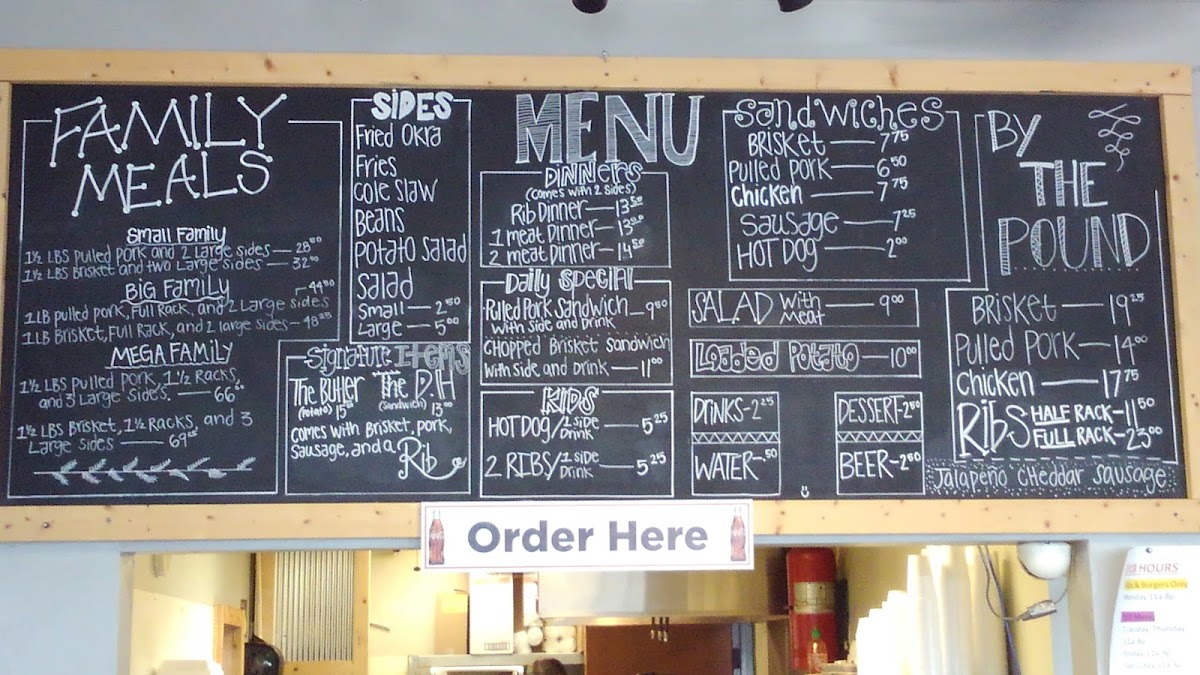 FAMILY
MEALS
Small Family
1½ LBS Pulled Pork and 2 Large sides — 28⁵⁰
1½ LBS Brisket and two Large sides — 32⁰⁰
BIG Family
44⁵⁰
1 LB pulled pork, Full Rack, and 2 Large sides
1 LB Brisket, Full Rack, and 2 large sides — 48²⁵
MEGA FAMILY
1½ LBS Pulled Pork, 1½ Racks,
and 3 Large Sides. — 66
1½ LBS Brisket, 1½ Racks, and 3
Large Sides — 69²⁵
SIDES
Fried Okra
Fries
Cole Slaw
Beans
Potato Salad
Salad
Small — 2⁵⁰
Large — 5⁰⁰
Signature Items
The Butler The D.H
(Potato) 15⁵⁰ (Sandwich) 13⁰⁰
comes with Brisket, pork,
sausage, and a Rib
MENU
Dinners
(Comes with 2 Sides)
Rib Dinner — 13⁵⁰
1 meat Dinner — 13⁵⁰
2 meat Dinner — 14⁵⁰
Daily Special
Pulled Pork Sandwich — 9⁵⁰
With Side and Drink
Chopped Brisket Sandwich
With Side and Drink — 11⁰⁰
KIDS
HOT DOG/1 side Drink — 5²⁵
2 RIBS/1 side Drink — 5²⁵
Sandwiches
BRISKET — 7⁷⁵
Pulled Pork — 6⁵⁰
Chicken — 7⁷⁵
Sausage — 7²⁵
HOT DOG — 2⁰⁰
SALAD With Meat — 9⁰⁰
Loaded Potato — 10⁰⁰
DRINKS - 2²⁵
WATER - .⁵⁰
DESSERT - 2⁵⁰
BEER - 2⁵⁰
By
THE
POUND
BRISKET — 19²⁵
Pulled Pork — 14⁰⁰
Chicken — 17⁷⁵
RIBS HALF RACK - 11⁵⁰
FULL RACK - 23⁰⁰
Jalapeño Cheddar Sausage
Order Here
HOURS
& Burgers Only